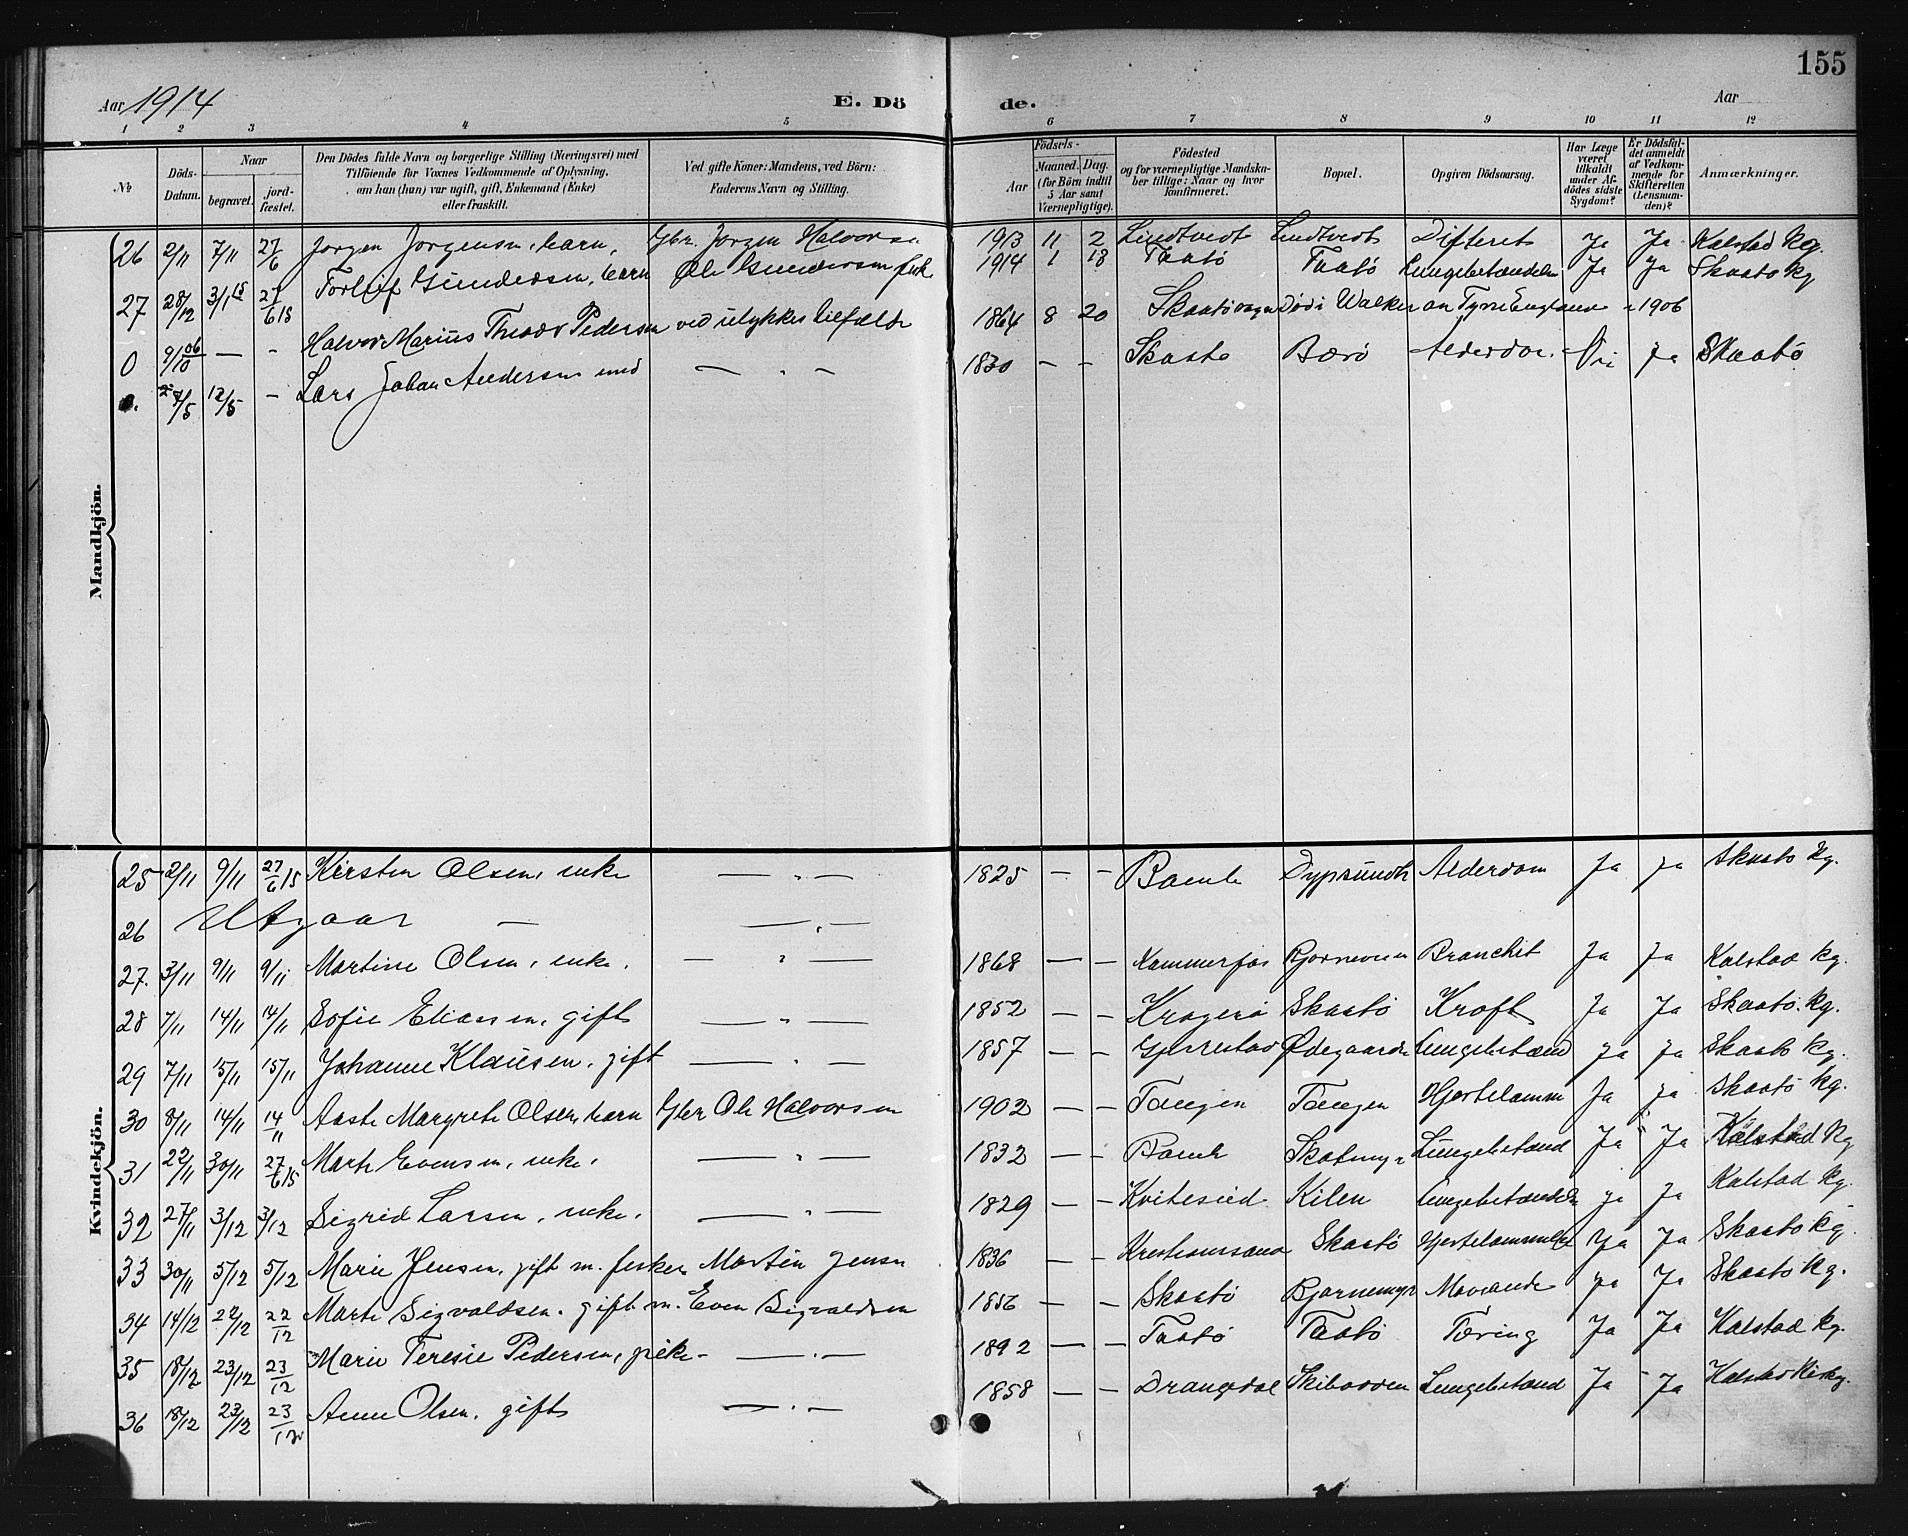 155
Aar 1914 E. Dö de. Aar
1 2 3 4 5 6 7 8 9 10 11 12
No
Döds-Datum.
Naar
begravet.
jord-fæstet.
Den Dödes fulde Navn og borgerlige Stilling (Næringsvei) med
Tilföiende for Voxnes Vedkommende af Oplysning.
om han (hun) var ugift, gift, Enkemand (Enke)
eller fraskilt.
Ved gifte Koner: Mandens, ved Börn:
Faderens Navn og Stilling.
Födsels-
Aar
Maaned. Dag.
(for Börn indtil
5 Aar samt
Værnepligtige).
Födested
og for værnepligtige Mandska-
ber tillige: Naar og hvor
konfirmeret.
Bopæl.
Opgiven Dödsaarsag.
Har Læge
været
tilkaldt
under Af-
dödes sidste
Sygdom?
Er Dödsfal-
det anmeldt
af Vedkom-
mende for
Skifteretten
(Lensman-
den)?
Anmærkninger.
Mandkjön.
26 2/11 7/11 27/6 Jørgen Jørgensen, barn, Gbr. Jørgen Halvorsen 1913 11 2 Lindtvedt Lindtvedt Difterit Ja Ja Kalstad Kg.
27 28/12 3/1 15 27/6 15 Torleif Gundersen, barn Ole Gundersen fisk. 1914 1 13 Taatö Taatö Lungebetændelse Ja Ja Skaatö Kg
0 9/10 06 — - Halvor Marius Theodor Pedersen ved ulykkes tilfælde 1864 8 20 Skaatö Död i Walker on Tyne England 1906
0. 5 12/5 - Lars Johan Andersen — " — 1830 — - Skaatö Aerö Alderdom. Nei Ja Skaatö
Kvindekjön.
25 2/11 9/11 27/6 15 Kirsten Olsen, enke — " — 1825 — — Bamle Dypsundt Alderdom Ja Ja Skaatö Kg.
26 Utgaar — — " —
27. 3/11 9/11 9/11 Martine Olsen, enke. — " — 1868 — — Kammerfos Bjørneveien Bronchit Ja Ja Kalstad Kg.
28 7/11 14/11 14/11 Sofie Eliassen, gift — " — 1852 — — Kragerö Skaatö Kræft Ja Ja Skaatö. Kg.
29 7/11 15/11 15/11 Johanne Klausen, gift — " — 1857 — — Gjerrestad Ødegaarden Lungebetænd Ja Ja Skaatö Kg.
30 8/11 14/11 14/11 Aaste Margrete Olsen, barn Gbr Ole Halvorsen 1902 — — Tangen Tangen Hjertelamm Ja Ja Skaatö Kg.
31 22/11 30/11 27/6 15 Marte Evensen, enke. — " — 1832 — — Bamle Lungebetænd Ja Ja Kalstad Kg
32 27/11 3/12 3/12 Sigrid Larsen, enke. — " — 1829 — — Kviteseid Kilen Lungebetændelse Ja Ja Kalstad Kg.
33 30/11 5/12 5/12 Marie Jensen, gift m. fisker Martin Jensen 1836 — Kristianssand Skaatö Hjertelammelse Ja Ja Skaatö Kg.
34 14/12 22/12 22/12 Marte Sigvaldsen. gift m. Even Sigvaldsen 1856 — — Skaatö Bjørnemyr Mavande Ja Ja Skaatö Kg.
35 18/12 23/12 23/12 Marie Teresie Pedersen, pike - — " — 1892 — — Taatö Taatö Tæring Ja Ja Kalstad Kg.
36 18/12 23/12 23/12 Anne Olsen, gift — " — 1858 — — Drangedal Lungebetænd Ja Ja Kalstad